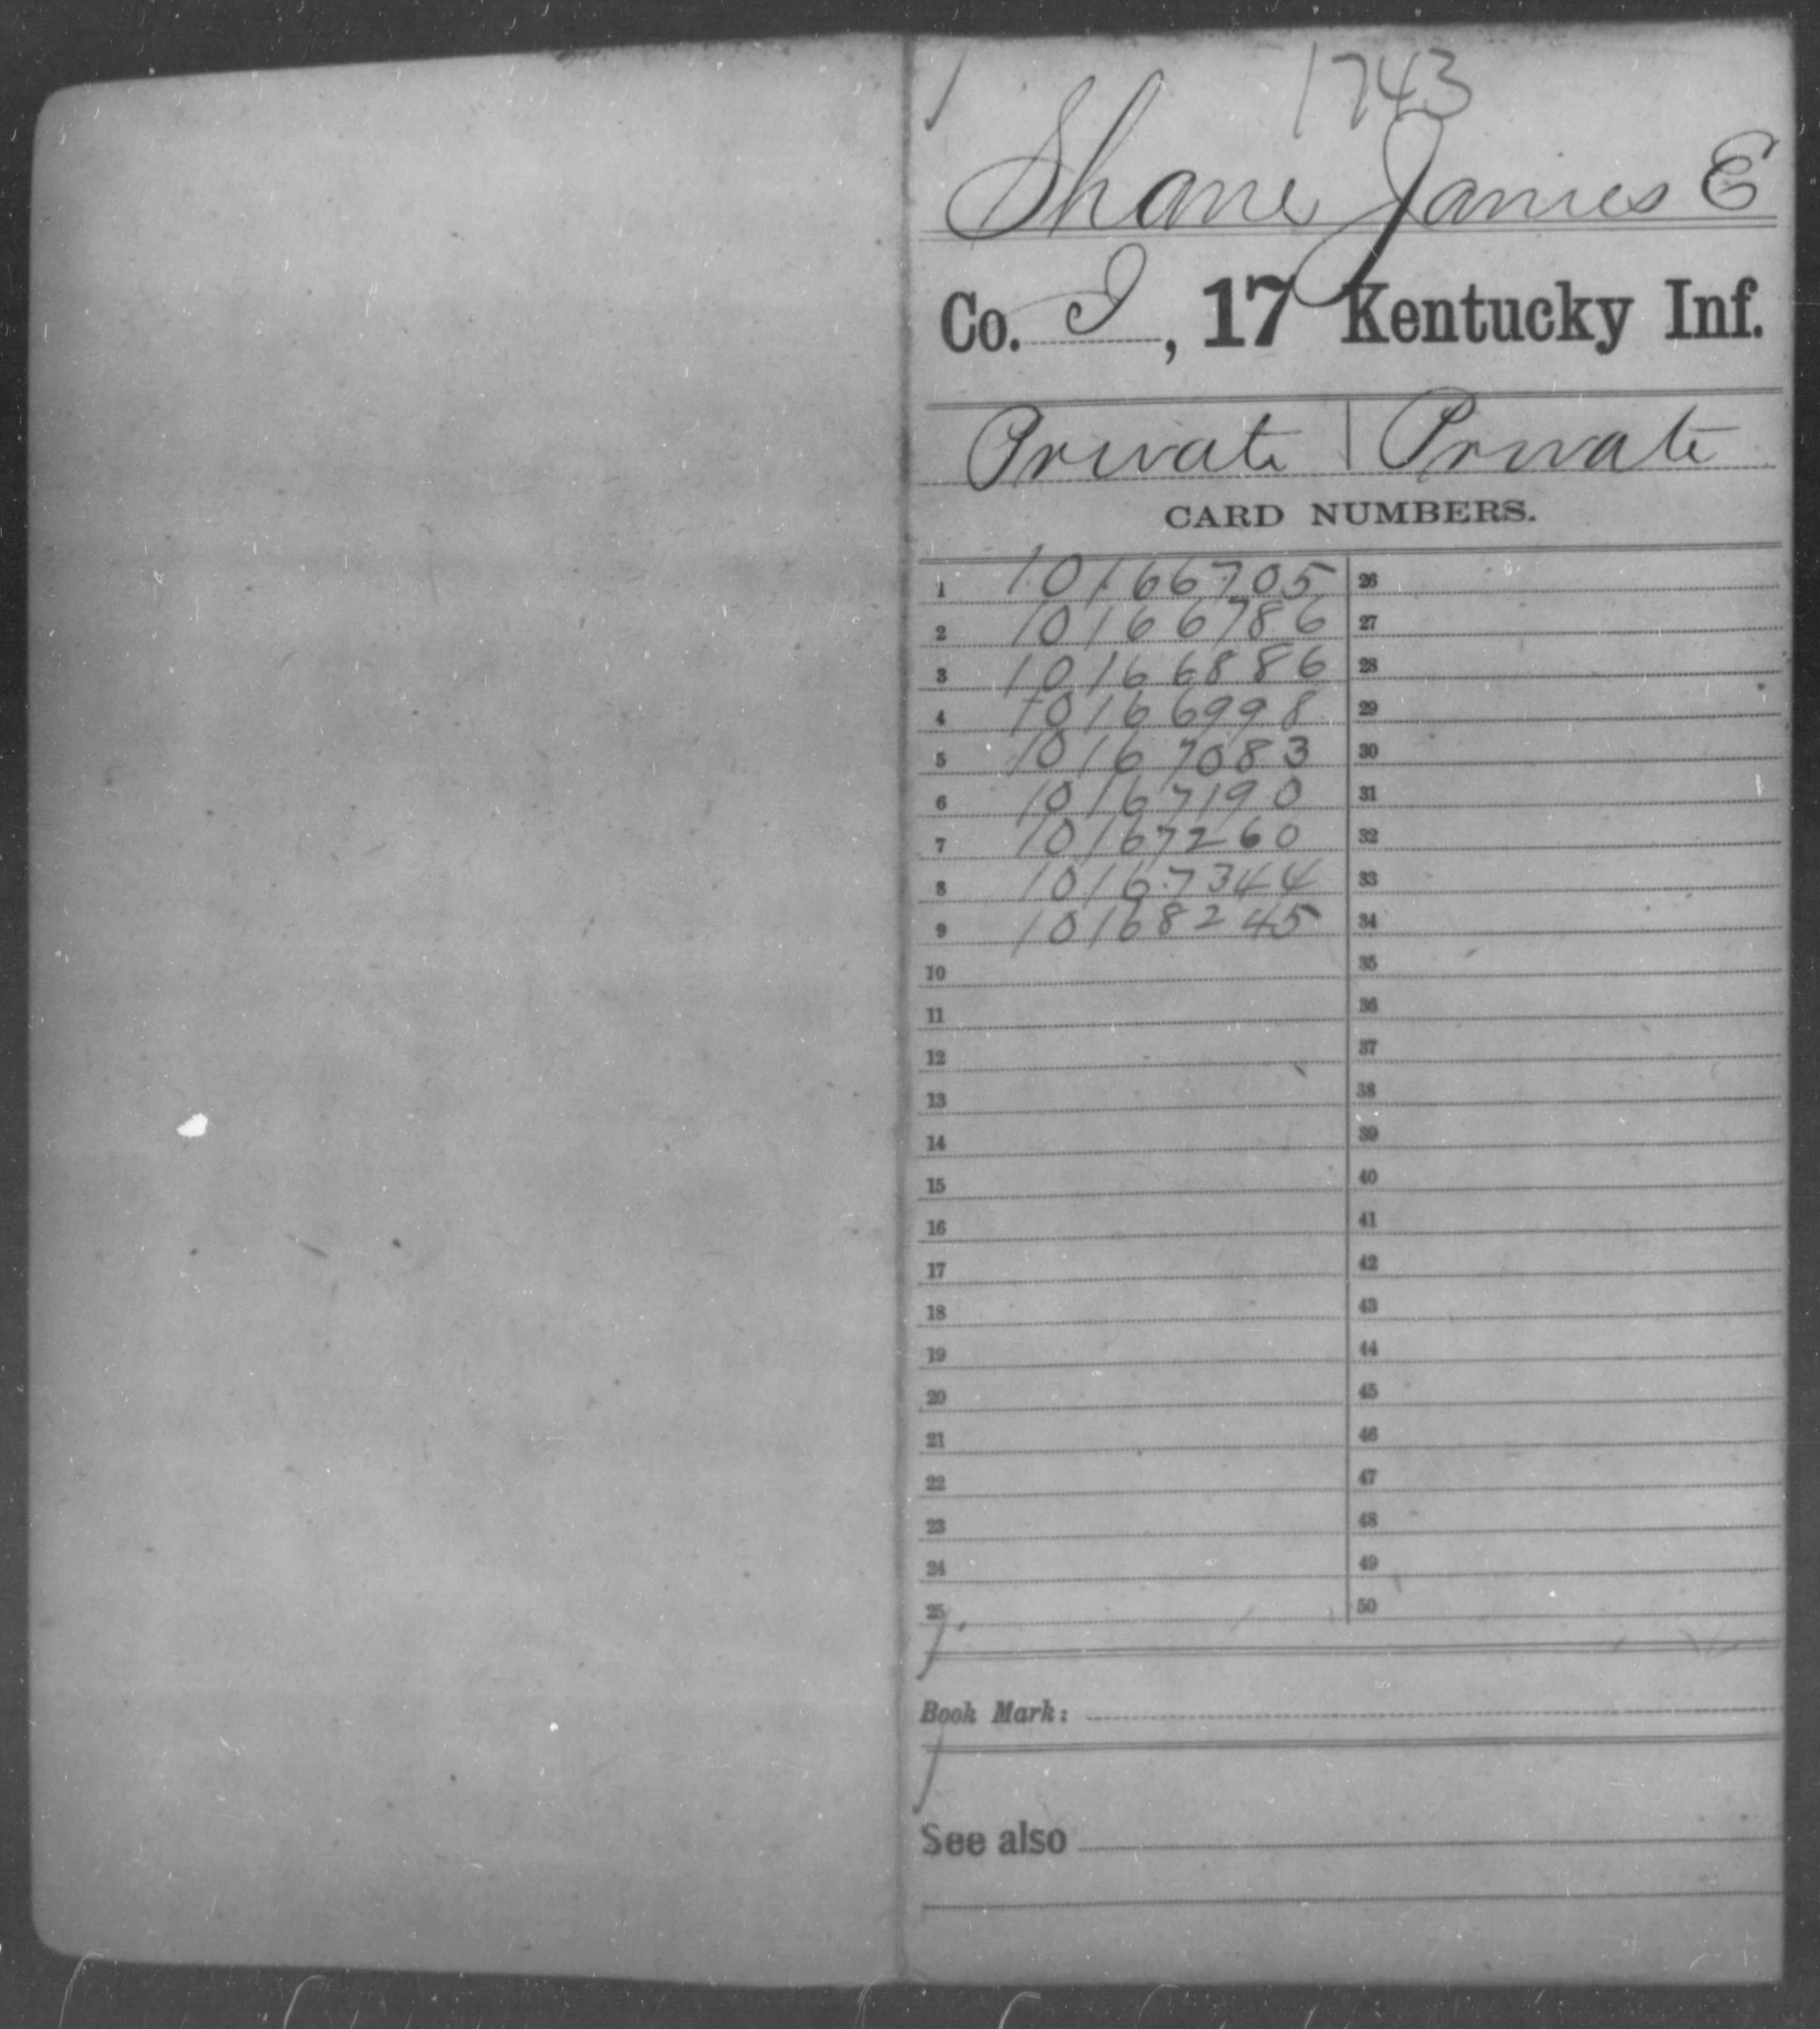 1743
Shane James E
Co. I, 17 Kentucky Inf.
Private | Private
CARD NUMBERS.
1 10166705 26
2 10166786 27
3 10166886 28
4 10166998 29
5 10167083 30
6 10167190 31
7 10167260 32
8 10167344 33
9 10168245 34
10 35
11 36
12 37
13 38
14 39
15 40
16 41
17 42
18 43
19 44
20 45
21 46
22 47
23 48
24 49
25 50
Book Mark:
See also